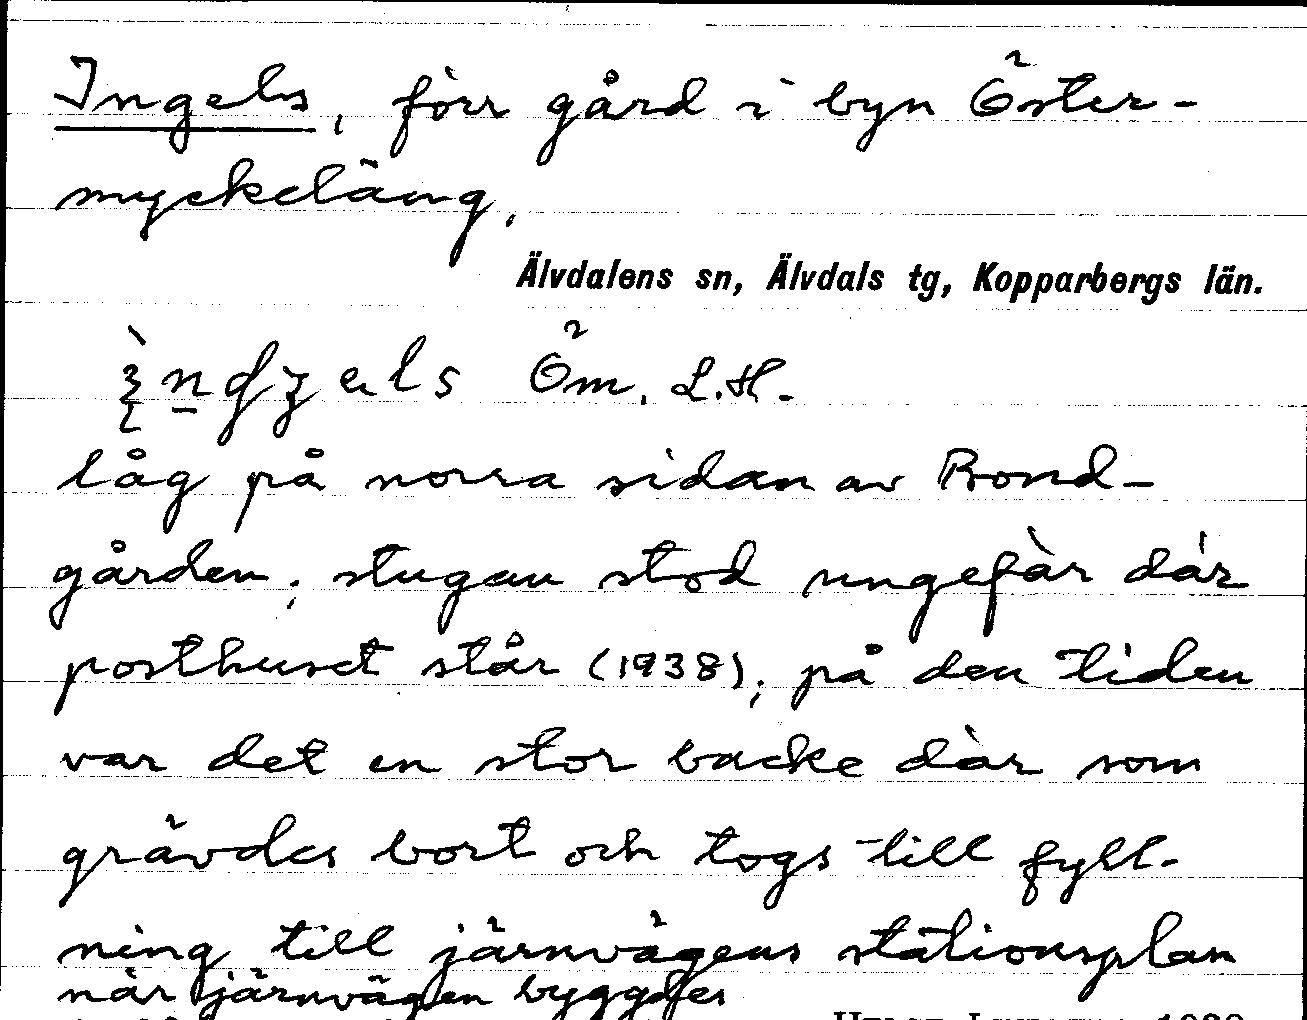 Ingels, förr gård i byn Öster-
myckeläng,
Älvdalens sn, Älvdals tg, Kopparbergs län.
Öm. L.H.
låg på norra sidan av Bond-
gården; stugan stod ungefär där
posthuset står (1938); på den tiden
var det en stor backe där som
grävdes bort och togs till fyll-
ning till järnvägens stationsplan
när järnvägen byggdes